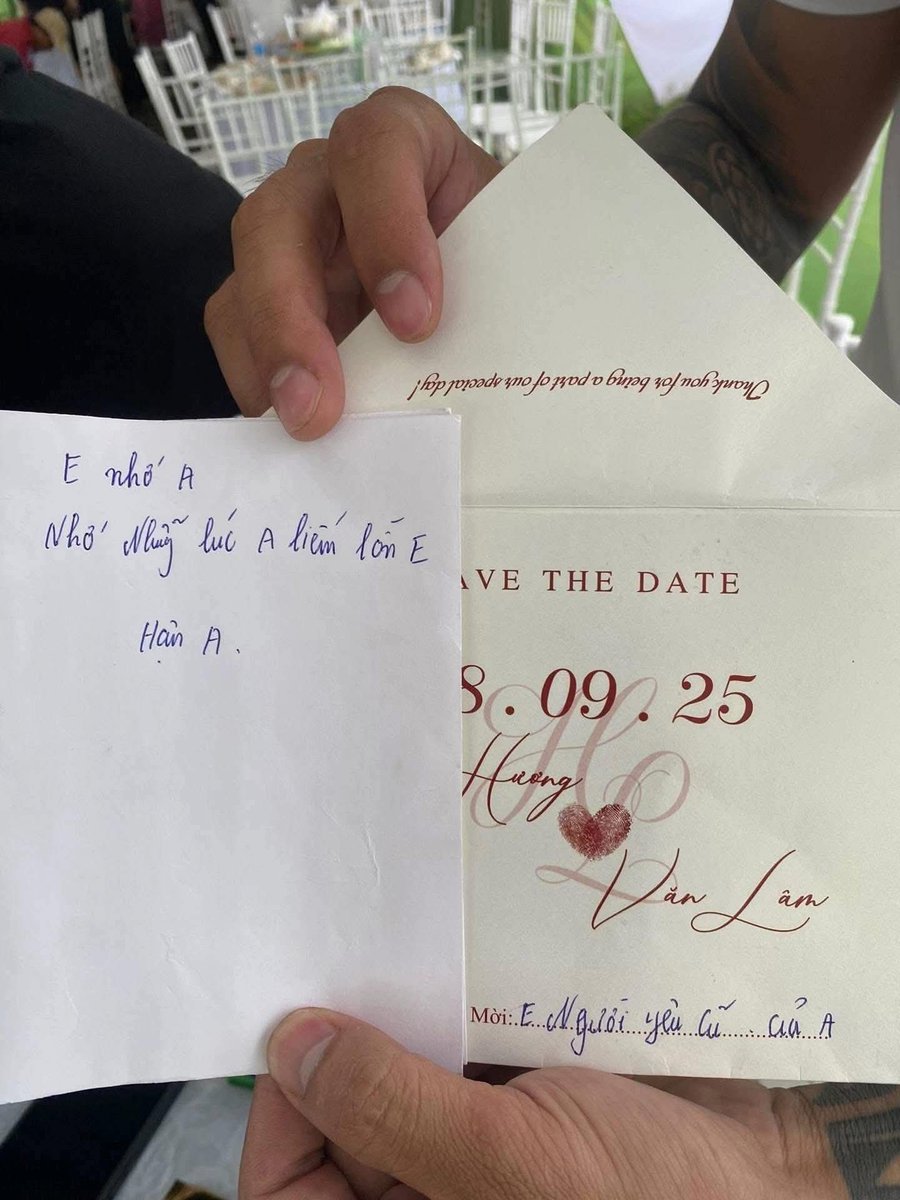 E nhớ A
Nhớ Những lúc A liếm lồn E
Hận A.
Thank you for being a part of our special day!
AVE THE DATE
8.09.25
Hương
Văn Lâm
Mời: E Người yêu cũ của A